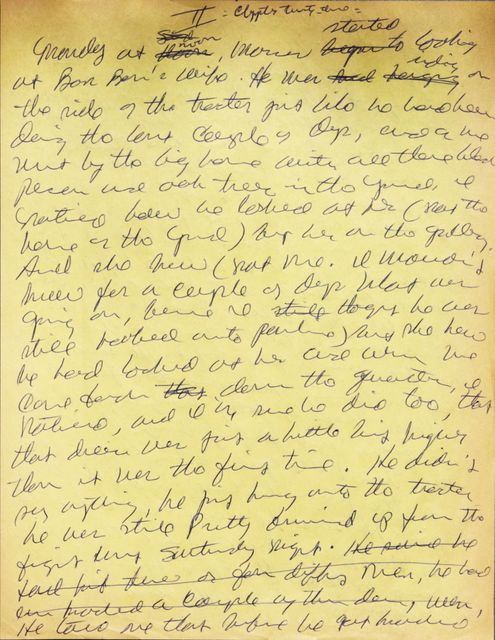 II = Chapter twenty-one =
Monday at noon, Marcus started looking
at Bon Bon's wife. He was riding on
the side of the tractor just like he had been
doing the last couple of days, and as we
went by the big house with all those
pecan and oak trees in the yard, I
noticed how he looked at her (not the
house or the yard) but her on the gallery.
And she knew (not me. I wouldn't
know for a couple of days what was
going on, because I thought he was
still hooked onto Pauline) but she knew
he had looked at her and when we
came back down the quarter, I
noticed, and I'm sure he did too, that
that dress was just a little bit higher
than it was the first time. He didn't
say anything, he just hung onto the tractor
he was still pretty bruised up from the
fight last Saturday night. He said he
had just two or four
a couple of them
He told me that before he got hooked